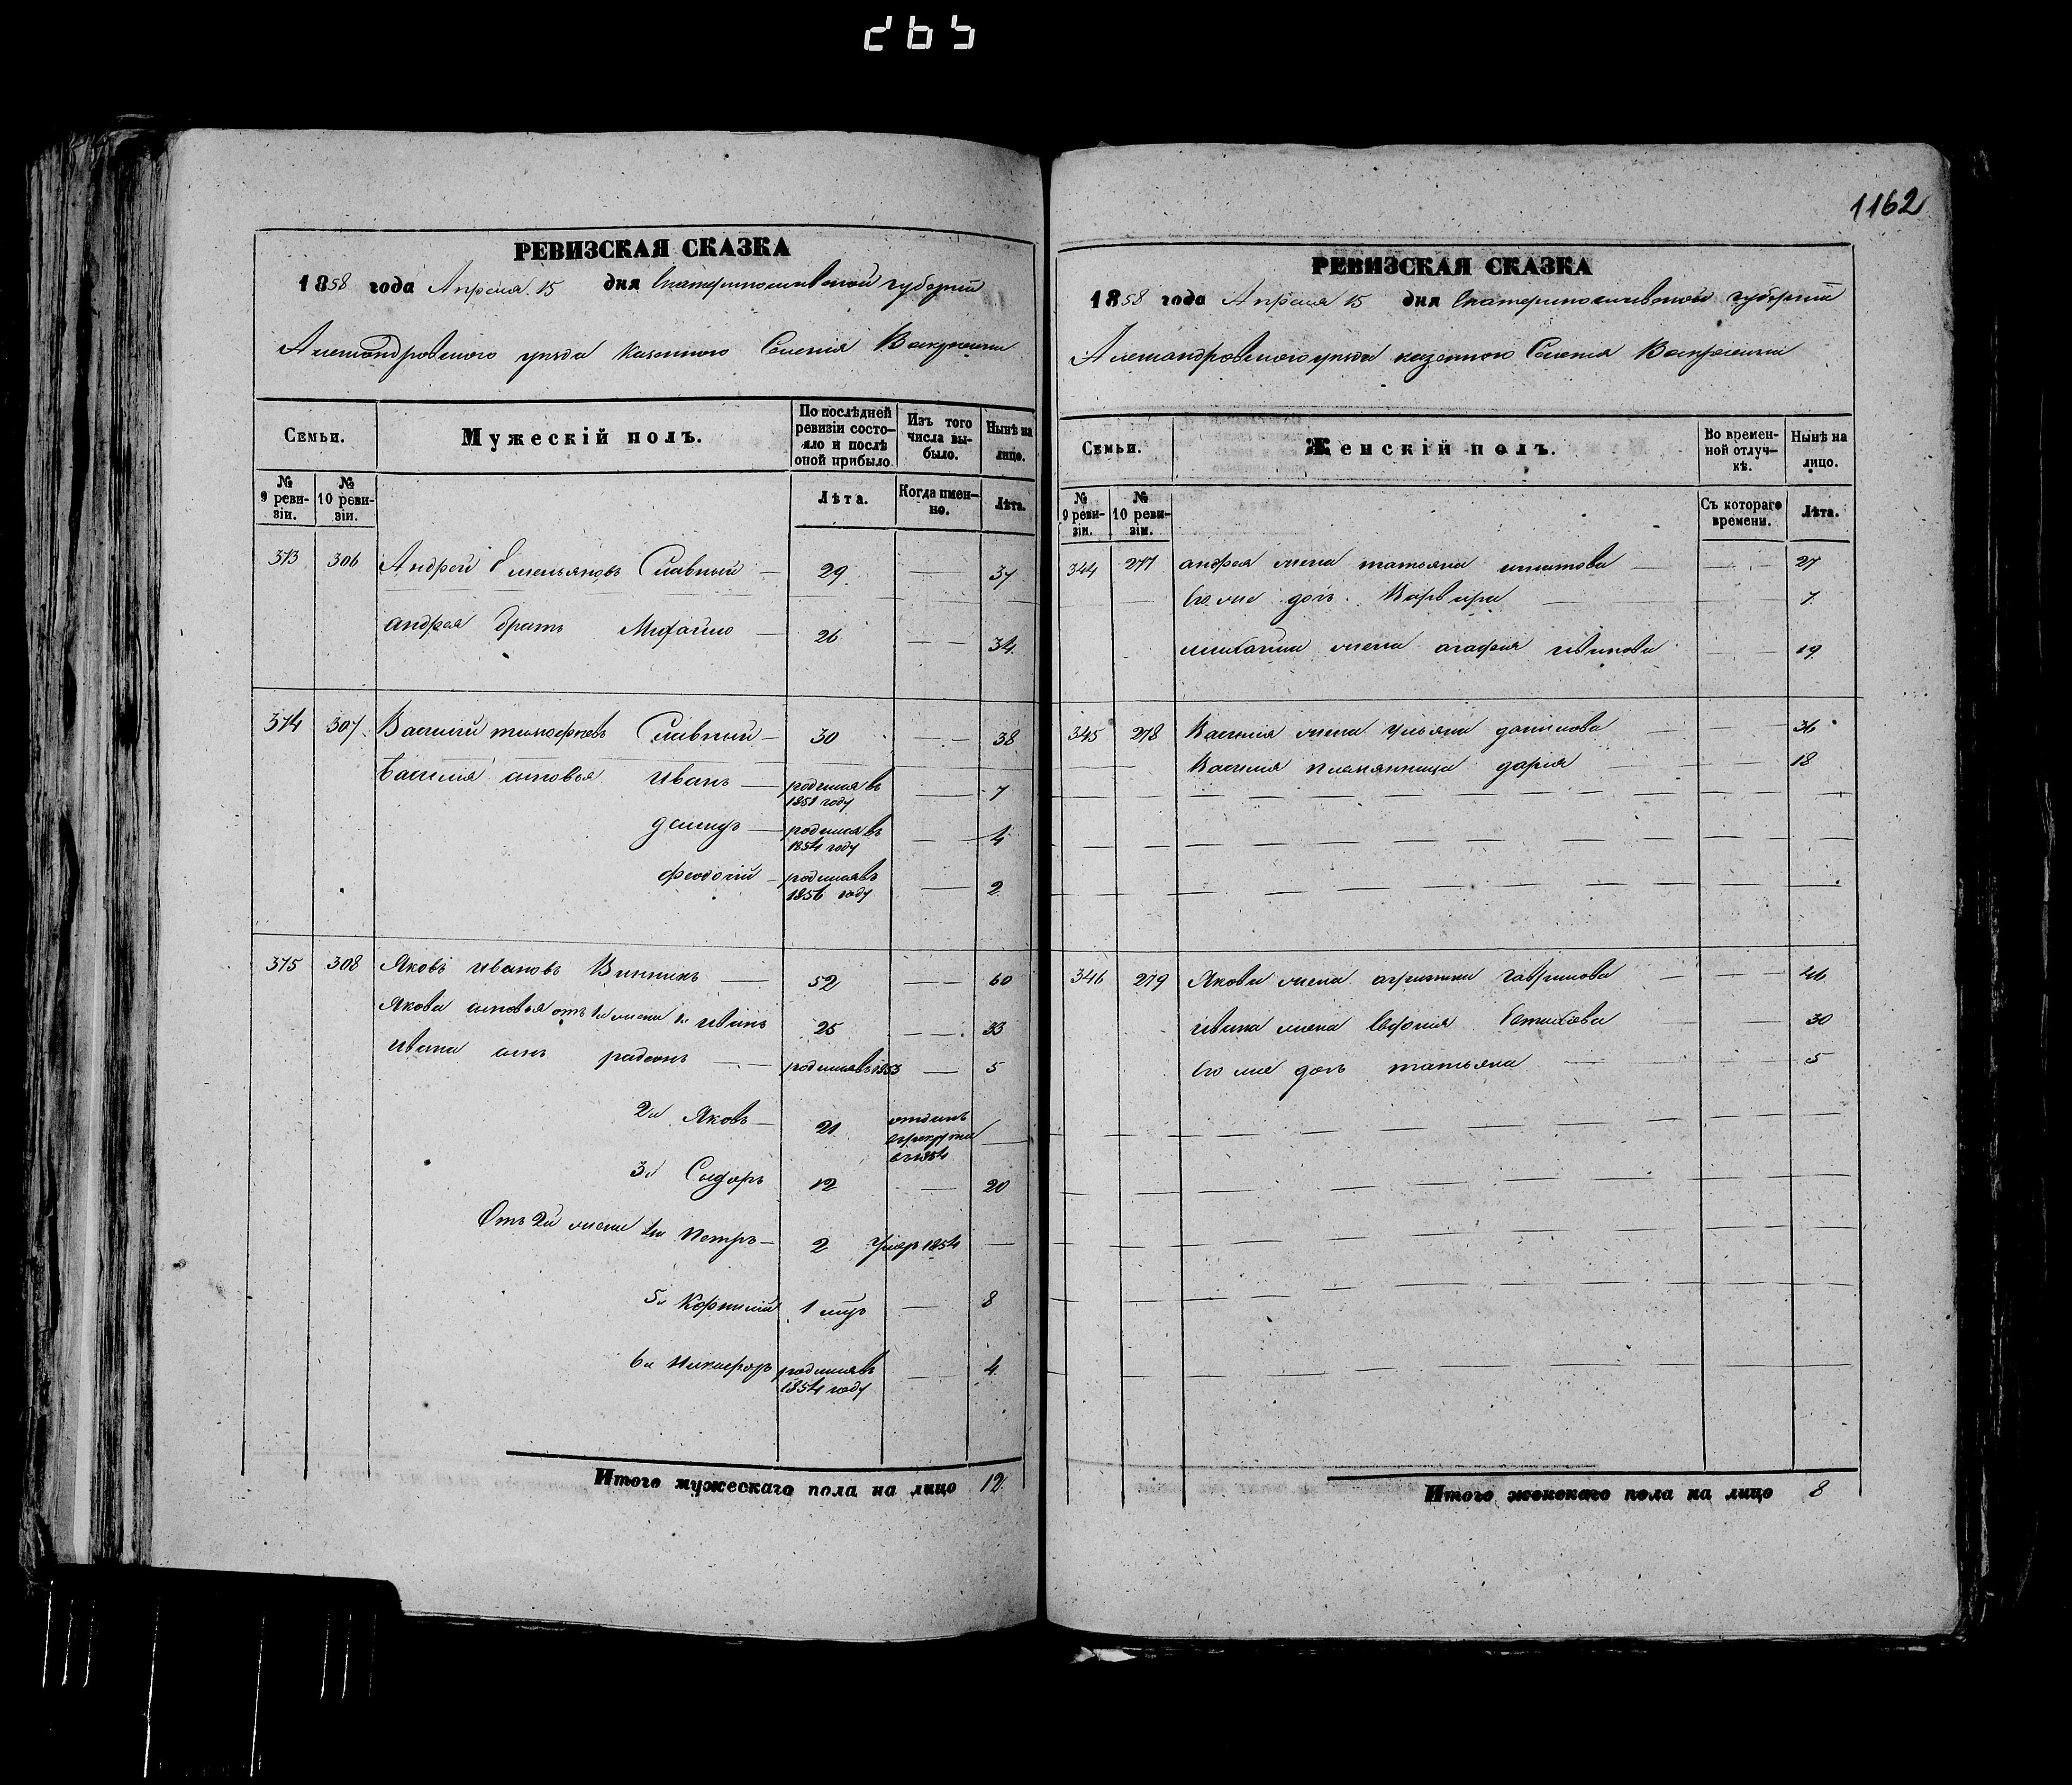 265
1162
РЕВИЗСКАЯ СКАЗКА
1858 года Апреля 15 дня Екатеринославской губернии
Александровского уезда казенного Селения Воскресенки
Семьи.
Мужескій полъ.
По послѣдней ревизіи состо-
яло и послѣ
оной прибыло.
Изъ того
числа вы-
было.
Нынѣ на
лицо.
№
9 реви-
зіи.
№
10 реви-
зіи.
Лѣта.
Когда имен-
но.
Лѣта.
373 306 Андрей Емельяновъ Славный — 29 — 37
андрея братъ Михайло — 26 — 34
374 307 Василий тимофеевъ Славный — 30 — 38
Василия сыновья Иванъ — родился въ
1851 году — 7
демидъ — родился въ
1854 году — 4
феодосий — родился въ
1856 году — 2
375 308 Яковъ ивановъ Винникъ — 52 — 60
Якова сыновья отъ 1й жены 1й иванъ 25 — 33
ивана сынъ радионъ — родился въ 1853 — 5
2й Яковъ — 21 отданъ
в рекруты
въ 1854 —
3й Сидоръ 12 — 20
Отъ 2й жены 4й Петръ — 2 Умеръ 1854 —
5й Корнилий 1 — 8
6й Никифоръ родился въ
1854 году — 4
Итого мужескаго пола на лицо 12
РЕВИЗСКАЯ СКАЗКА
1858 года Апреля 15 дня Екатеринославской губернии
Александровского уезда казенного Селения Воскресенки
Семьи.
Женскій полъ.
Во времен-
ной отлуч-
кѣ.
Нынѣ на
лицо.
№
9 реви-
зіи.
№
10 реви-
зіи.
Съ котораго
времени.
Лѣта.
344 277 андрея жена татьяна игнатова — 27
Его же дочь Варвара — 7
михайла жена агафия иванова — 19
345 278 Василия жена ульяна данилова — 36
Василия племянница дария — 18
346 279 Якова жена гаврилова — 46
ивана жена — 30
Его же дочь татьяна — 5
Итого женскаго пола на лицо 8